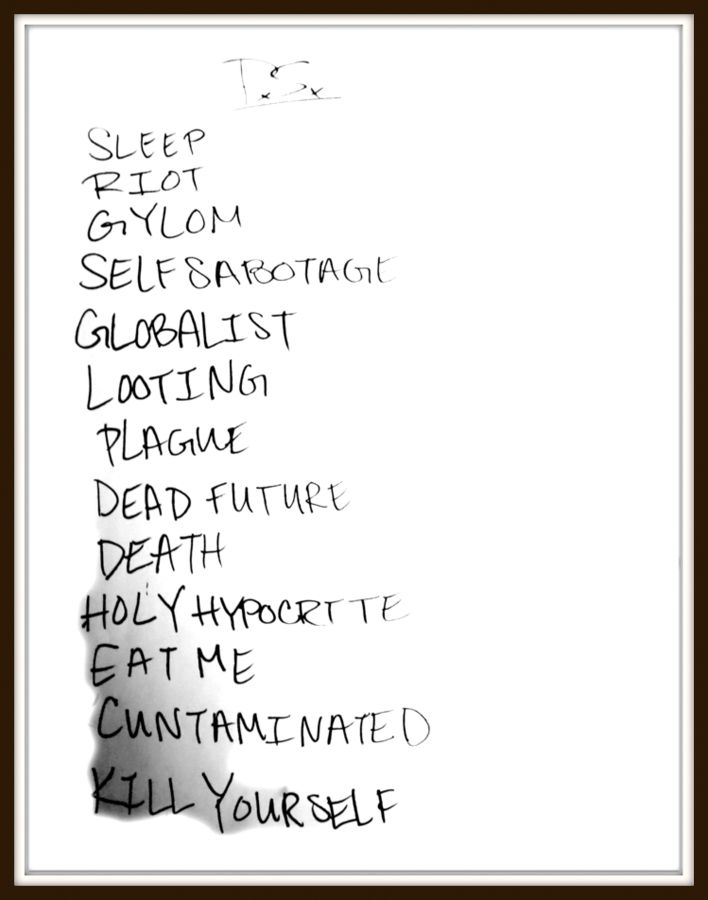 SLEEP
RIOT
GYLOM
SELF SABOTAGE
GLOBALIST
LOOTING
PLAGUE
DEAD FUTURE
DEATH
HOLY HYPOCRITE
EAT ME
CUNTAMINATED
KILL YOURSELF